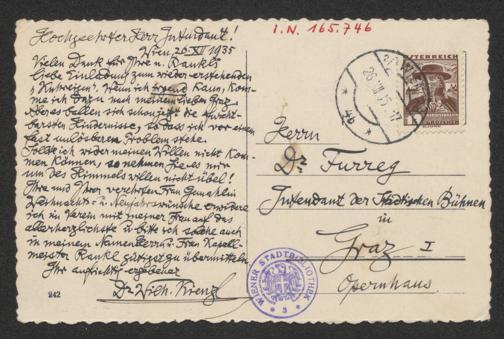 I.N. 165.746
Hochgeehrter Herr Intendant!
Wien, 26.XII 1935
Vielen Dank für Ihre u. Rankls
liebe Einladung zum wieder erstehenden
„Kuhreigen". Wenn ich irgend kann, kom-
me ich dazu nach meinem lieben Graz.
Aber es ballen sich schon jetzt die
barsten Hindernisse, so dass ich vor einem
fast unlösbaren Problem stehe.
Sollte ich wider meinen Willen nicht kom-
men können, so nehmen Sie es mir
um des Himmels willen nicht übel!
Ihre und Ihrer verehrten Frau Gemahlin
Weihnachts- u. Neujahrswünsche erwidere
ich in Verein mit meiner Frau auf das
allerherzlichste u. bitte ich solche auch
in meinem Namen Herrn u. Frau Kapell-
meister Rankl gütigst zu übermitteln.
Ihr aufrichtig ergebener
Dr. Wilh. Kienzl
242
ÖSTERREICH
WIEN
26.XII.35
4b
Herrn
Dr. Furreg
Intendant der Städtischen Bühnen
in
Graz I
Opernhaus.
WIENER STADTBIBLIOTHEK
3